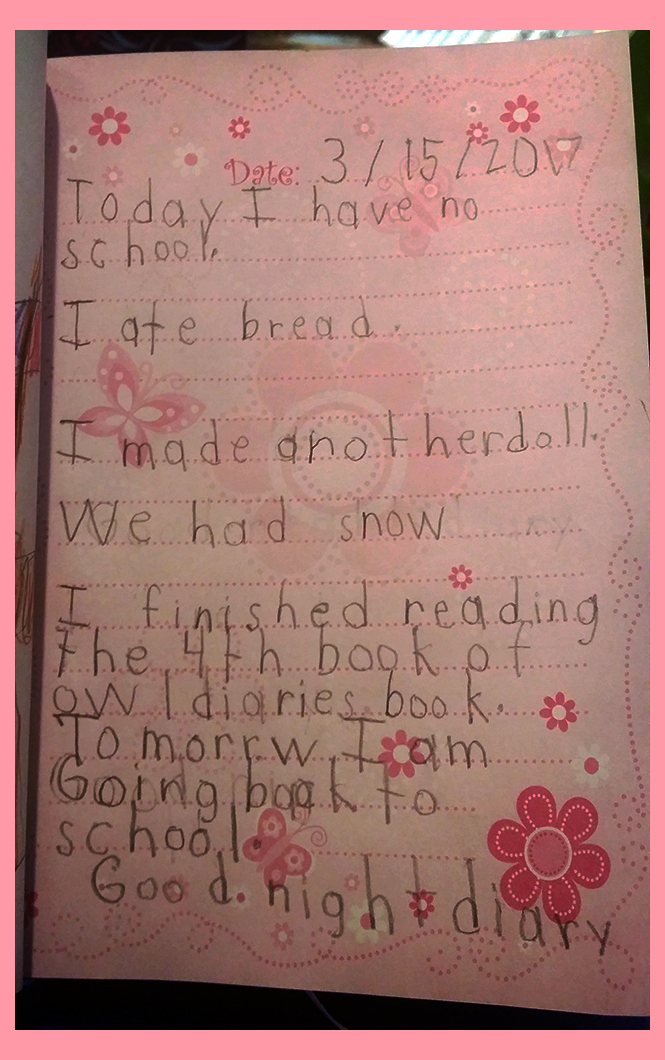 Date: 3/15/2017
Today I have no
school.
I ate bread.
I made another doll.
We had snow
I finished reading
the 4th book of
owl diaries book.
Tomorrw I am
Going back to
school.
Good night diary